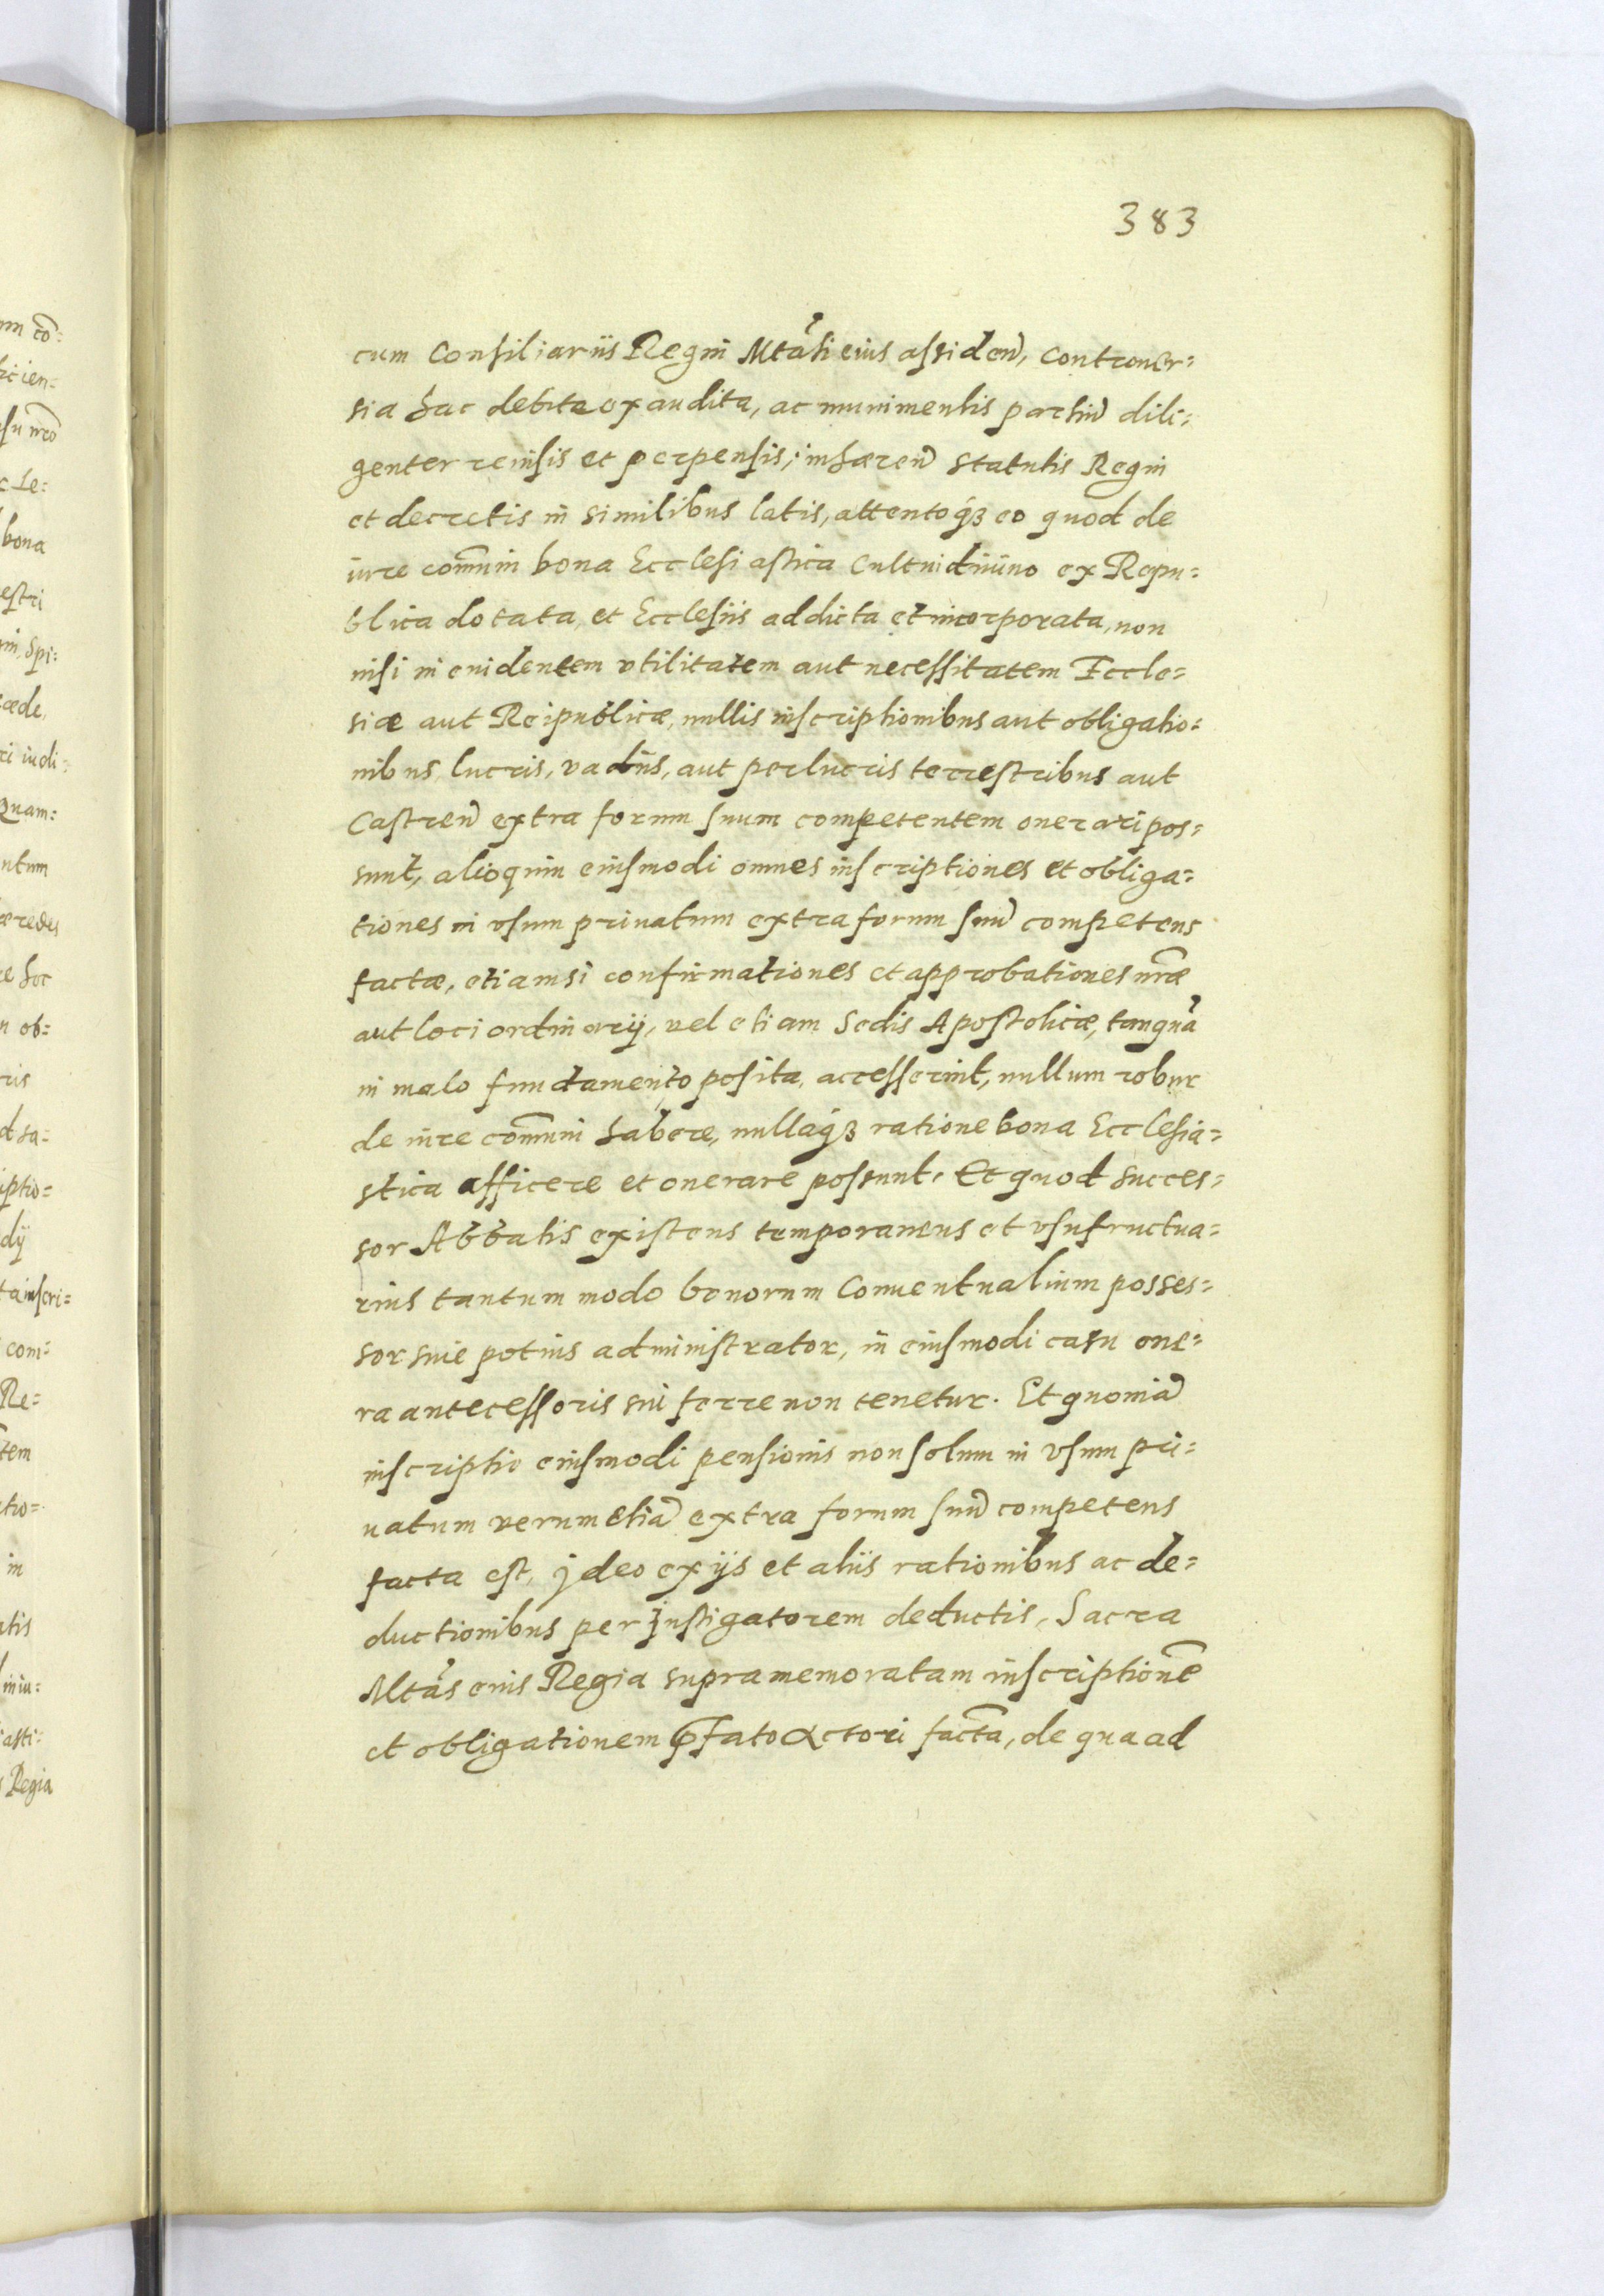 383
cum Consiliariis Regni Mtãti eius assideñ, controuer=
sia hac debite exaudita, ac munimentis partiũ dili=
genter reuisis et perpensis, inhæreñ statutis Regni
et decretis in similibus latis, attentoqȝ eo quod de
iure com̃uni bona Ecclesiastica Cultui diuino ex Repu=
blica dotata, et Ecclesiis addicta et incorporata, non
nisi in euidentem vtilitatem aut necessitatem Eccle=
siæ aut Reipublicæ, nullis inscriptionibus aut obligatio=
nibus, lucris, vadiis, aut perlucris terrestribus aut
Castreñ extra forum suum competentem onerari pos=
sunt, alioquin eiusmodi omnes inscriptiones et obliga=
tiones in vsum priuatum extra forum suũ competens
factæ, etiamsi confirmationes et approbationes nr̃æ
aut loci ordinarij, vel etiam Sedis Apostolicæ, tanquã
in malo fundamento posita, accesserint, nullum robur
de iure com̃uni habere, nullaqȝ ratione bona Ecclesia=
stica afficere et onerare possunt. Et quod succes=
sor Abbatis existens temporaneus et vsufructua=
rius tantummodo bonorum Conuentualium posses=
sor siue potius administrator, in eiusmodi casu one=
ra antecessoris sui ferre non tenetur. Et quoniã
inscriptio eiusmodi pensionis non solum in vsum pri=
uatum verum etiã extra forum suũ competens
facta est, jdeo ex ijs et aliis rationibus ac de=
ductionibus per jnstigatorem deductis, Sacra
Mtãs eius Regia supramemoratam inscriptionẽ
et obligationem p̃fato Actori factã, de qua ad